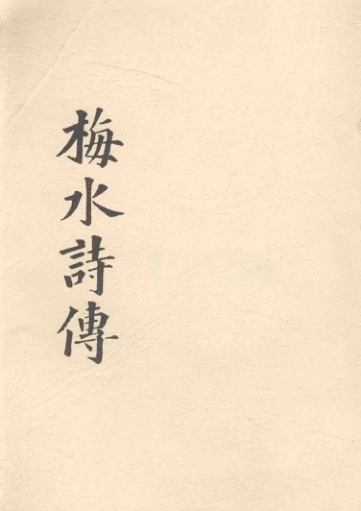 梅水詩傳